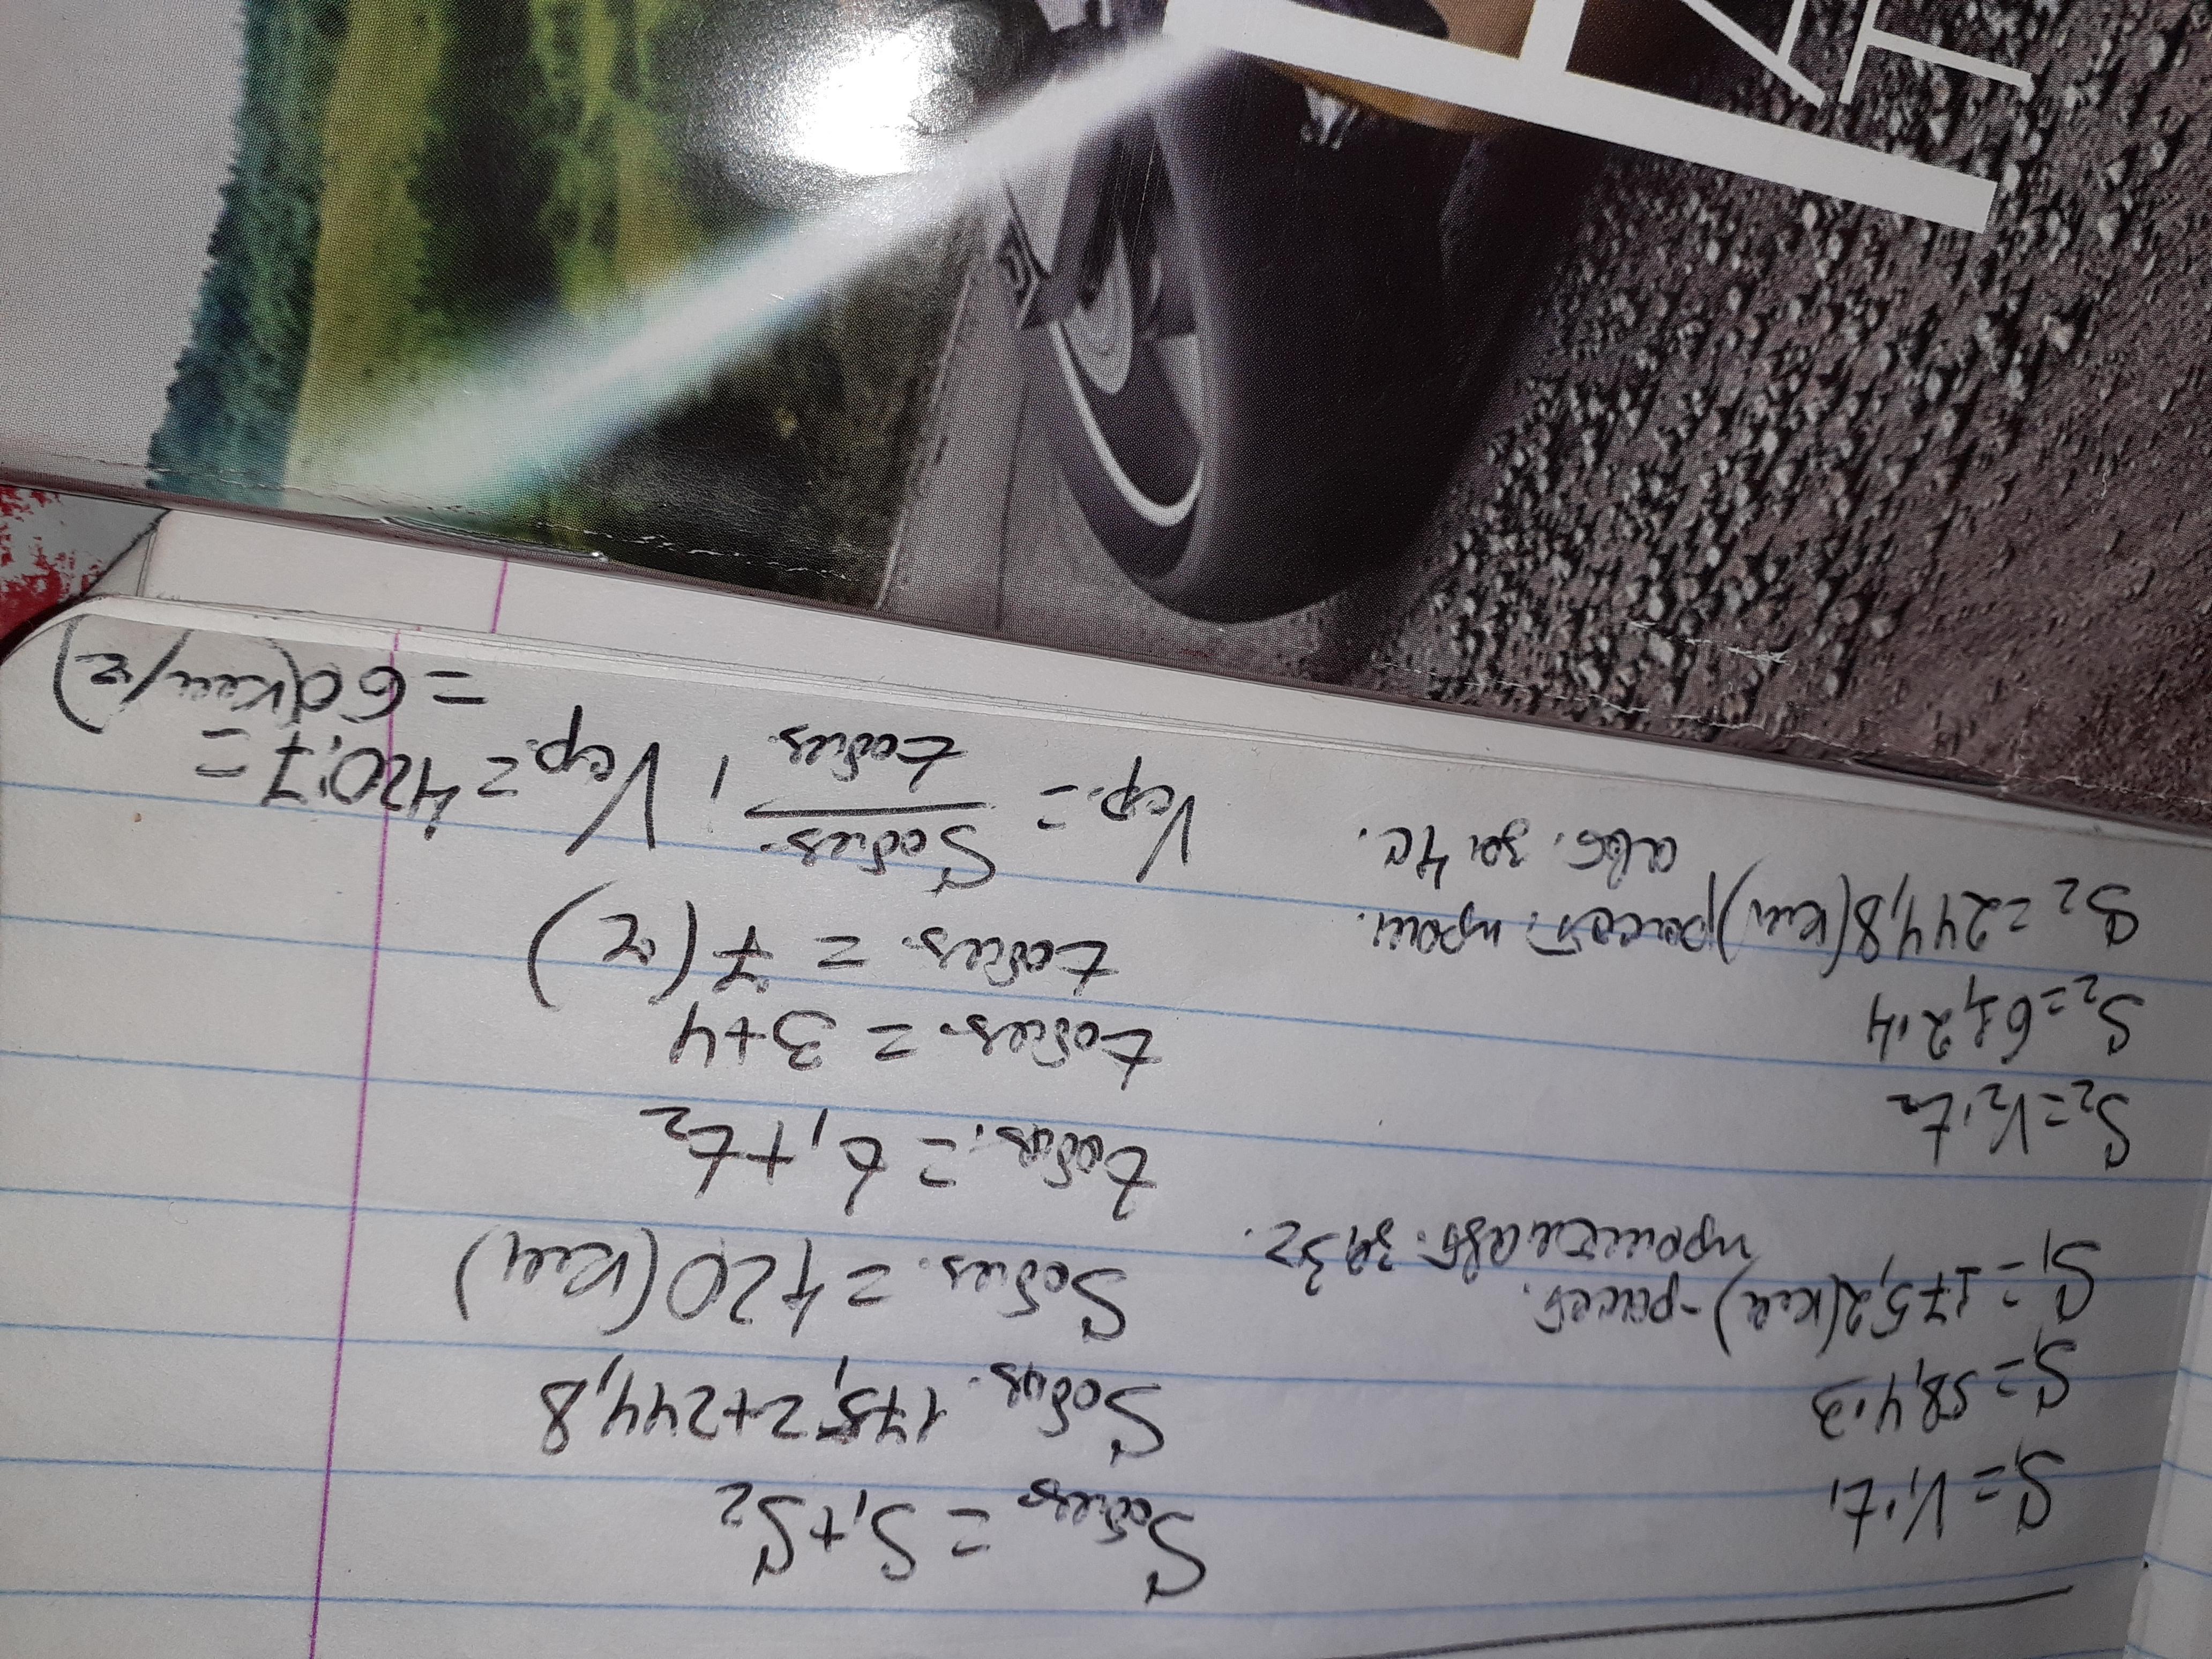 S₁=V₁·t₁
S₁=58,4·3
S₁=175,2(км)-расст.
S₂=V₂·t₂
S₂=61,2·4
S₂=244,8(км)расст. прош.
авт. за 4ч.
Sобщ. = S₁+S₂
Sобщ. 175,2+244,8
Sобщ. = 420(км)
tобщ. = t₁+t₂
tобщ. = 3+4
tобщ. = 7(ч)
Vср. = Sобщ./tобщ., Vср.=420:7=
=60(км/ч)